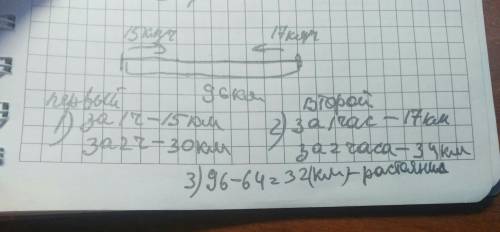 15км/ч 17км/ч
96км
первый второй
1) за 1ч-15км 2) за 1час-17км
за 2ч-30км за 2часа-34км
3) 96-64=32(км)-растояния